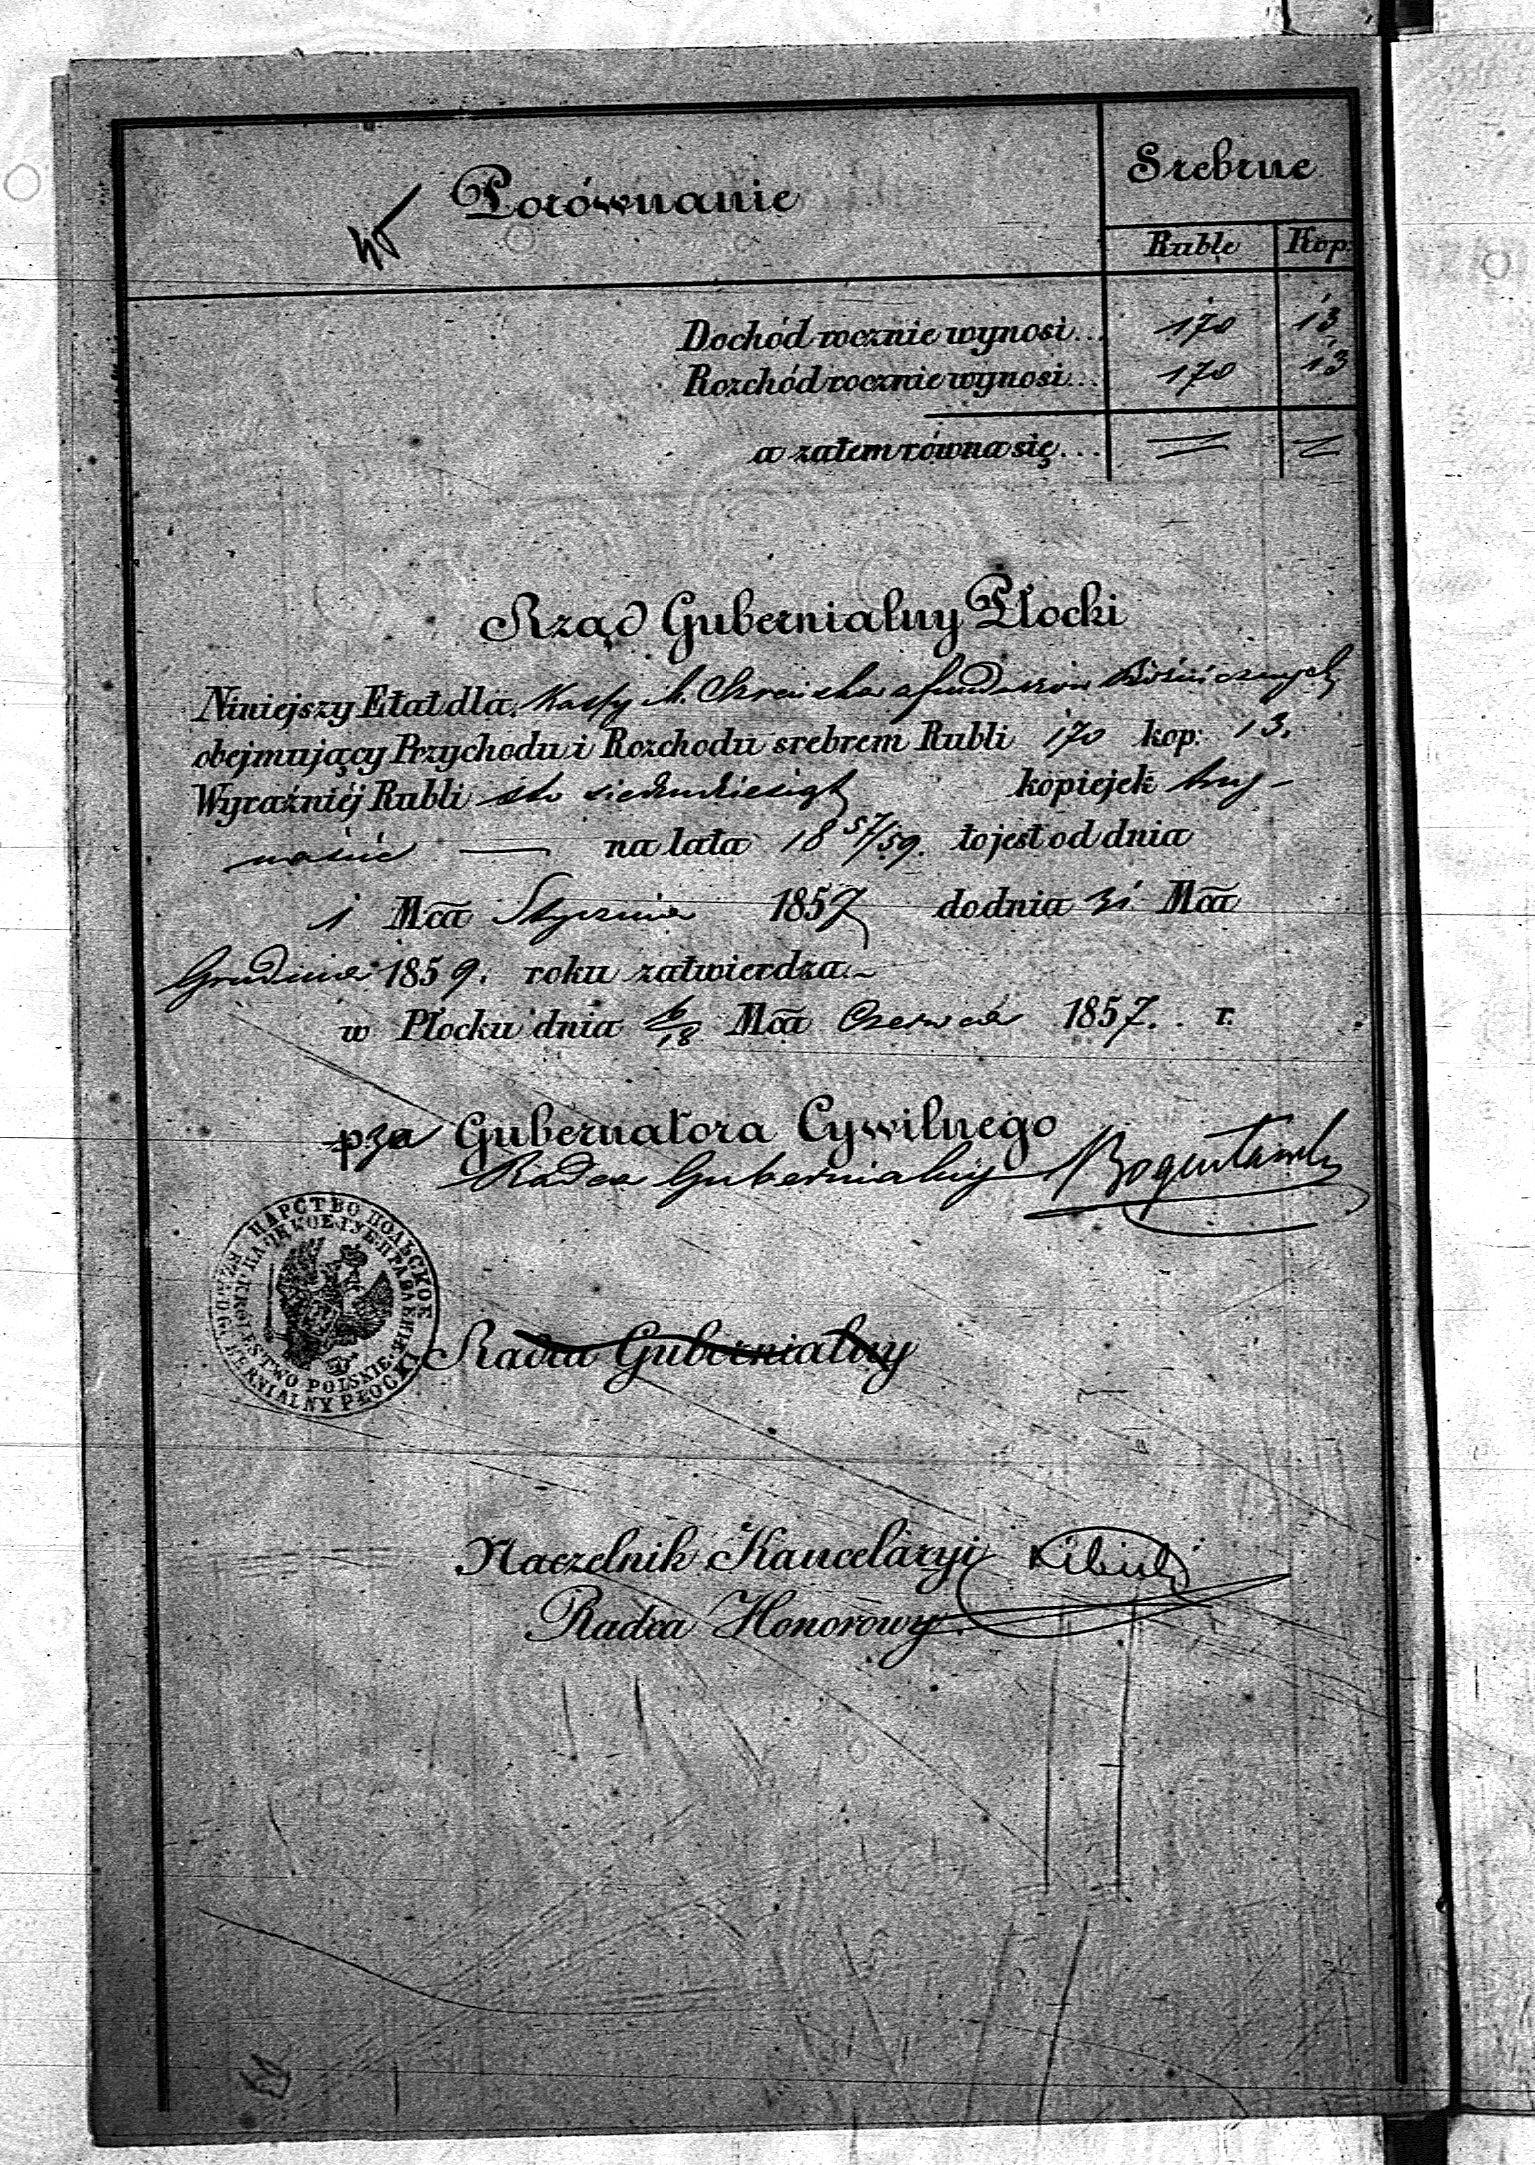 Porównanie
Srebrne
Ruble Kop:
Dochód rocznie wynosi... 170 13
Rozchód rocznie wynosi... 170 13
a zatem równa się...
Rząd Gubernialny Płocki
Niniejszy Etat dla Kassy M. Szreńska a funduszów Bóżnicznych
obejmujący Przychodu i Rozchodu srebrem Rubli 170 kop: 13.
Wyraźniéj Rubli sto siedmdziesiąt kopiejek trzy-
naście — na lata 18 57/59. to jest od dnia
1 Mca Stycznia 1857 do dnia 31 Mca
Grudnia 1859. roku zatwierdza.~
w Płocku dnia 6/18 Mca Czerwca 1857. r.
pza Gubernatora Cywilnego
Radca Gubernialny
ЦАРСТВО ПОЛЬСКОЕ
KRÓLESTWO POLSKIE
RZĄD GUBERNIALNY PŁOCKI
Radca Gubernialny
Naczelnik Kancelaryi
Radca Honorowy